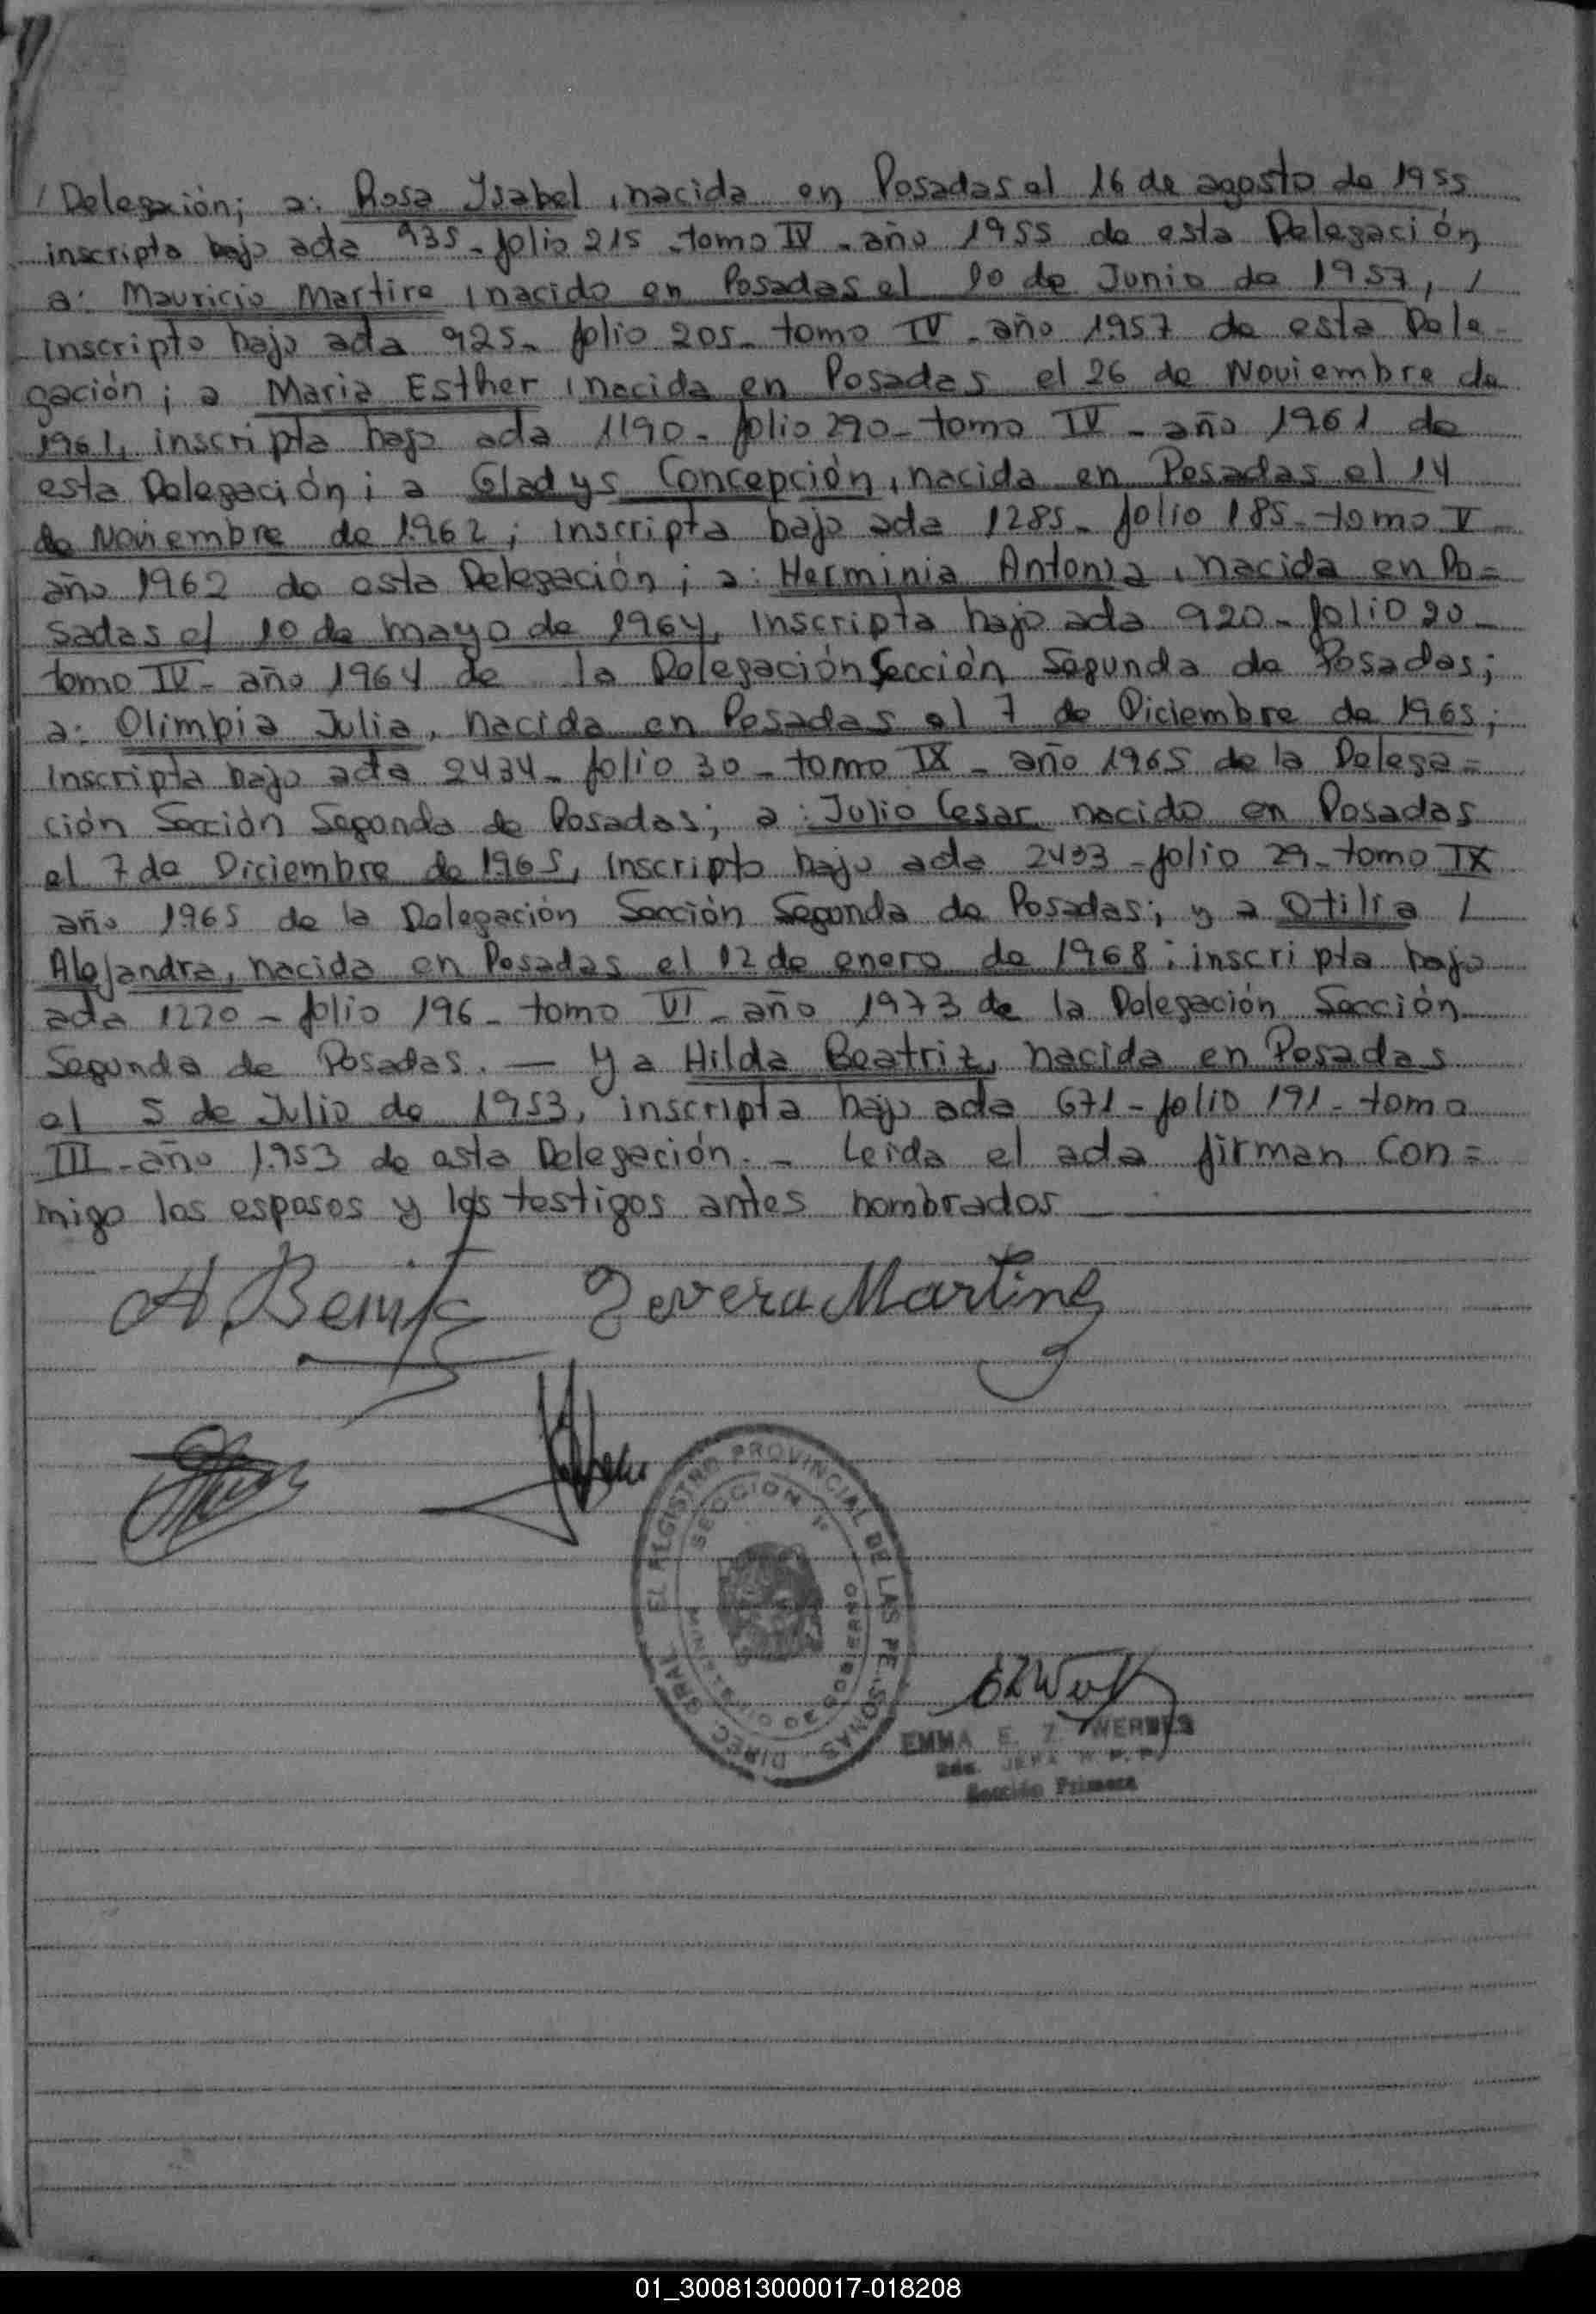 / Delegación; a: Rosa Ysabel, nacida en Posadas el 16 de agosto de 1955
inscripta bajo acta 935_ folio 215 _tomo IV _ año 1955 de esta Delegación
a: Mauricio Martire, nacido en Posadas el 10 de Junio de 1957, /
inscripto bajo acta 925_ folio 205_ tomo IV _ año 1957 de esta Dele-
gación; a Maria Esther, nacida en Posadas el 26 de Noviembre de
1961, inscripta bajo acta 1190_ folio 290_ tomo IV _ año 1961 de
esta Delegación; a Gladys Concepción, nacida en Posadas el 14
de Noviembre de 1962; inscripta bajo acta 1285_ folio 185_ tomo V_
año 1962 de esta Delegación; a: Herminia Antonia, nacida en Po=
sadas el 10 de mayo de 1964, inscripta bajo acta 920_ folio 20_
tomo IV_ año 1964 de la Delegación Sección Segunda de Posadas;
a: Olimpia Julia, nacida en Posadas el 7 de Diciembre de 1965;
inscripta bajo acta 2434_ folio 30_ tomo IX_ año 1965 de la Delega=
ción Sección Segunda de Posadas; a: Julio Cesar nacido en Posadas
el 7 de Diciembre de 1965, inscripto bajo acta 2433_ folio 29_ tomo IX
año 1965 de la Delegación Sección Segunda de Posadas; y a Otilia /
Alejandra, nacida en Posadas el 12 de enero de 1968; inscripta bajo
acta 1220_ folio 196_ tomo VI_ año 1973 de la Delegación Sección
Segunda de Posadas. — Y a Hilda Beatriz, nacida en Posadas
el 5 de Julio de 1953, inscripta bajo acta 671_ folio 191_ tomo
III_ año 1953 de esta Delegación. _ Leida el acta firman con=
migo los esposos y los testigos antes nombrados
A. Benitz Severa Martinez
DIREC. GRAL. DEL REGISTRO PROVINCIAL DE LAS PERSONAS
SECCION 1ª
MINISTERIO DE GOBIERNO
EMMA E. Z. WERBES
2da. JEFA R. P. P.
Sección Primera
01_300813000017-018208